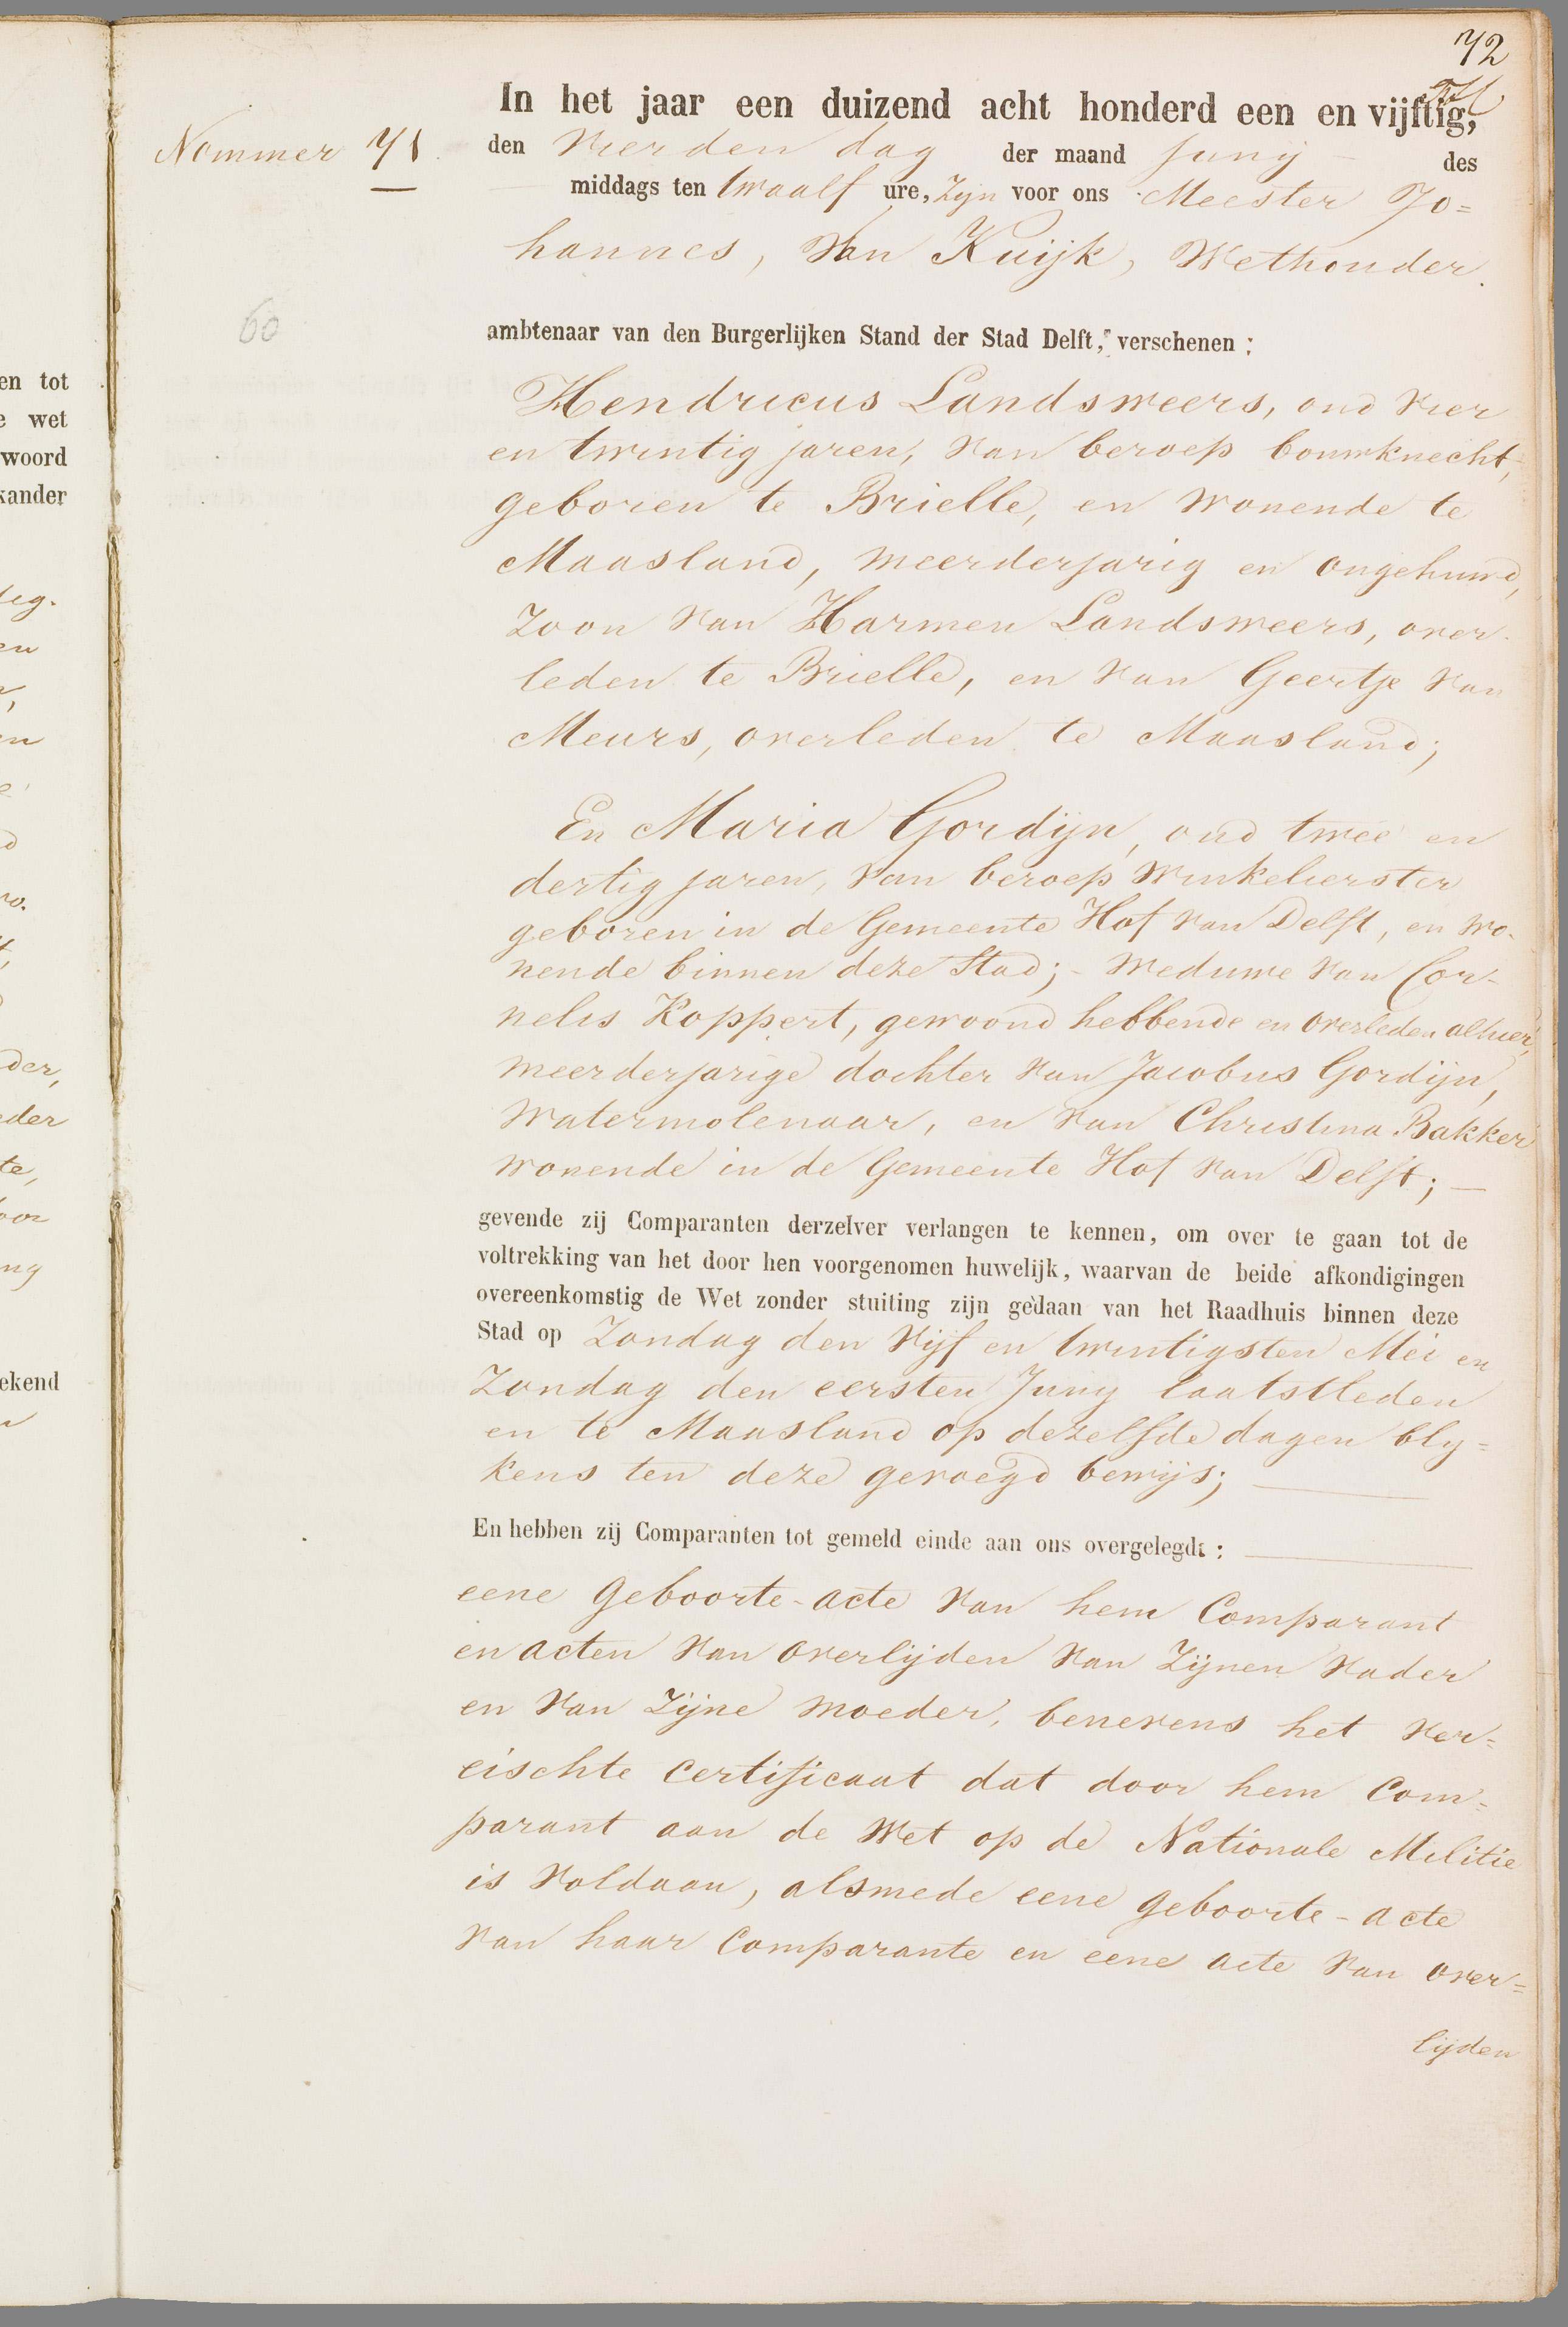 72
In het jaar een duizend acht honderd een en vijftig,
Nommer 71
den Vierden dag der maand Junij des
middags ten twaalf ure, Zyn voor ons Meester Jo=
hannes, Van Kuijk, Wethouder.
60
ambtenaar van den Burgerlijken Stand der Stad Delft, verschenen:
Hendricus Landsweers, oud vier
en twintig jaren, van beroep bouwknecht,
geboren te Brielle, en wonende te
Maasland, meerderjarig en ongehuwd,
Zoon van Harmen Landsweers, over-
leden te Brielle, en van Geertje van
Meurs, overleden te Maasland;
En Maria Gordijn, oud twee en
dertig jaren, van beroep Winkelierster
geboren in de Gemeente Hof van Delft, en wo-
nende binnen deze Stad; - Weduwe van Cor-
nelis Koppert, gewoond hebbende en overleden alhier,
meerderjarige dochter van Jacobus Gordijn,
Watermolenaar, en van Christina Bakker
wonende in de Gemeente Hof van Delft; —
gevende zij Comparanten derzelver verlangen te kennen, om over te gaan tot de
voltrekking van het door hen voorgenomen huwelijk, waarvan de beide afkondigingen
overeenkomstig de Wet zonder stuiting zijn gedaan van het Raadhuis binnen deze
Stad op Zondag den Vijf en twintigsten Mei en
Zondag den eersten Juny laatstleden
en te Maasland op dezelfde dagen bly=
kens ten deze gevoegd bewijs;
En hebben zij Comparanten tot gemeld einde aan ons overgelegd:
eene Geboorte-acte van hem Comparant
en acten van overlijden van Zijnen Vader
en van Zijne moeder, benevens het ver=
eischte certificaat dat door hem Com=
parant aan de Wet op de Nationale Militie
is voldaan, alsmede eene geboorte-acte
van haar Comparante en eene acte van over=
lijden
en tot
wet
woord
kander
der,
eder
te,
ekend